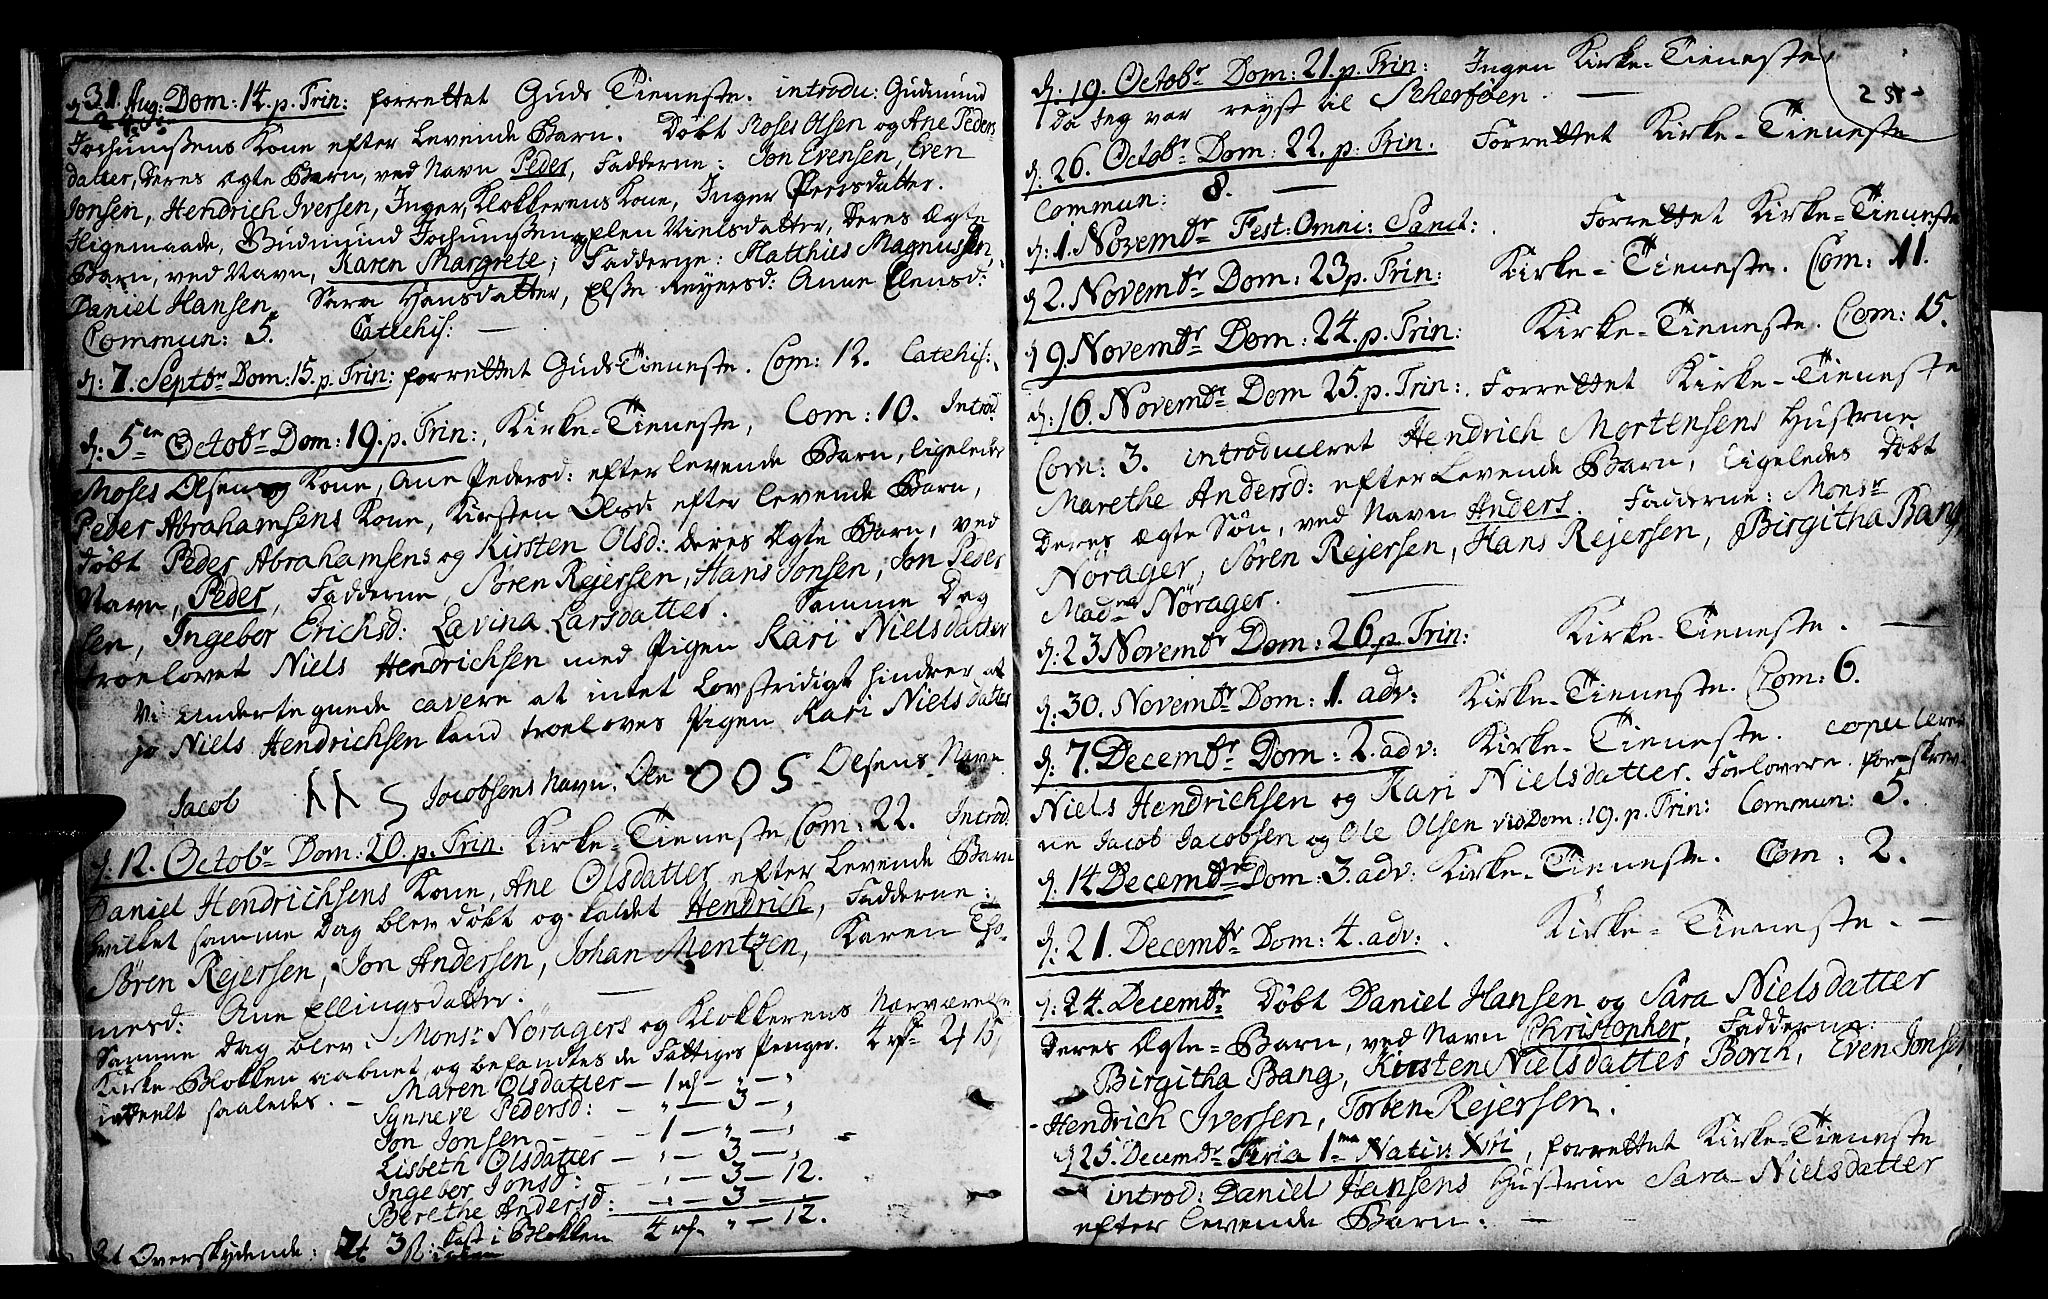 d: 31. Aug: Dom: 14. p. Trin: forrettet Guds Tieneste. introdu: Gudmund
Jochumsens Kone efter Levende Barn. Døbt Moses Olsen og Ane Peders
datter, deres Ægte Barn, ved Navn Peder, Fadderne: Jon Evensen, Even
Jonsen, Hendrich Iversen, Inger, Klokkerens Kone, Inger Peersdatter.
Ligemaade, Gudmund Jochumsen og Elen Nielsdatter, deres Ægte
Barn, ved Navn, Karen Margrete; Fadderne: Matthius Magnussen,
Daniel Hansen, Sara Hansdatter, Elsse Reyersd: Anne Elensd:
Commun: 5. Catechis: —
d: 7. Septbr Dom: 15. p. Trin: forrettet Guds Tieneste. Com: 12. Catehis:
d: 5te Octobr Dom: 19. p. Trin:, Kirke-Tieneste, Com: 10. Introd
Moses Olsens Kone, Ane Pedersd: efter levende Barn, ligeledes
Peder Abrahamsens Kone, Kirsten Olsd: efter levende Barn,
døbt Peder Abrahamsens og Kirsten Olsd: deres Ægte Barn, ved
Navn, Peder, Fadderne, Søren Rejersen, Hans Jonsen, Jon Peder
sen, Ingebor Erichsd: Lavina Larsdatter. Samme Dag
troelovet Niels Hendrichsen med Pigen Kari Nielsdatter
Vi undertegnede cavere at intet Lovstridigt hindrer at
jo Niels Hendrichsen kand troeloves Pigen Kari Nielsdatter
Jacob Jocobsens Navn. Ole OOS Olsens Navn.
d: 12. Octobr Dom: 20. p. Trin. Kirke-Tieneste, Com: 22. Introd.
Daniel Hendrichsens Kone, Ane Olsdatter efter Levende Barn
hvilket samme Dag blev døbt og kaldet Hendrich, Fadderne:
Søren Rejersen, Jon Andersen, Johan Mentzen, Karen Tho-
mesd: Ane Ellingsdatter. —
Samme dag blev Monsr Nøragers og Klokkerens Nærværelse
Kirke-Blokken aabnet, og befandtes de Fattiges Penger. 4 rf 2 15
uddeelt saaledes. — Maren Olsdatter — 1 rf — " — "
Synneve Pedersd: — " — 3 — "
Jon Jonsen — 1 — " — "
Lisbeth Olsdatter — " — 3 — "
Ingebor Jonsd: — " — 3 — 12.
Berethe Andersd: — " — 3 — "
Det Overskydende: 2 3 ß: kast i Blokken 4 rf " — 12.
d: 19. Octobr Dom: 21. p. Trin: Ingen Kirke-Tieneste,
da Jeg var reyst til Scherføen. —
d: 26. Octobr Dom: 22. p. Trin. Forrettet Kirke-Tieneste
Commun: 8. —
d: 1. Novembr Fest: Omni: Sanct: Forrettet Kirke-Tieneste
d 2. Novembr Dom: 23 p. Trin: Kirke-Tieneste. Com: 11.
d 9. Novembr Dom: 24. p. Trin: Kirke-Tieneste. Com: 15.
d: 16. Novembr Dom 25. p. Trin: Forrettet Kirke-Tieneste
Com: 3. introduceret Hendrich Mortensens Hustrue
Marethe Andersd: efter Levende Barn, ligeledes døbt
deres Ægte Søn, ved Navn Anders. Fadderne: Monsr
Nörager, Søren Rejersen, Hans Rejersen, Birgitha Bang
Madme Nörager. —
d: 23 Novembr Dom: 26. p. Trin: Kirke-Tieneste. —
d: 30. Novembr Dom: 1. adv: Kirke-Tieneste. Com: 6.
d: 7. Decembr Dom: 2. adv: Kirke-Tieneste. copuleret
Niels Hendrichsen og Kari Nielsdatter. Forlovere. forskrev
ne Jacob Jacobsen og Ole Olsen vid Dom: 19. p. Trin: Commun: 5.
d. 14 Decembr Dom: 3. adv: Kirke-Tieneste. Com: 2.
d: 21. Decembr Dom: 4. adv: Kirke-Tieneste. —
d: 24. Decembr Døbt Daniel Hansen og Sara Nielsdatter
deres Ægte-Barn, ved Navn Christopher, Fadderne:
Birgitha Bang, Kirsten Nielsdatter Borch, Even Jonsen,
Hendrich Iversen, Torben Rejersen.
d 25. Decembr Feria 1ma Nativ: Xsti, forrettet Kirke-Tieneste
introd: Daniel Hansens Hustrue Sara Nielsdatter
efter levende Barn. —